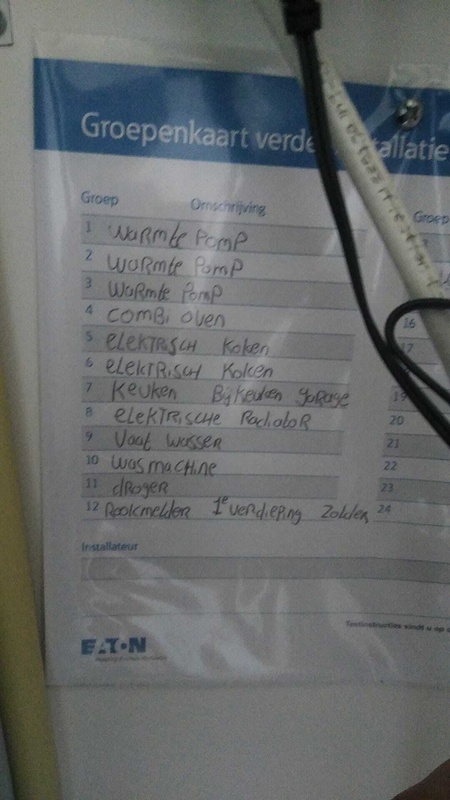 Groepenkaart verde allatie
Groep Omschrijving Groep
1 Warmte Pomp
2 Warmte Pomp
3 Warmte Pomp
4 Combi oven
5 elektrisch Koken
6 elektrisch Koken
7 Keuken Bijkeuken garage
8 elektrische Radiator
9 Vaat wasser
10 wasmachine
11 droger
12 Rookmelder 1e verdieping Zolder
16
17
19
20
21
22
23
24
Installateur
Testinstructies vindt u op
EATON